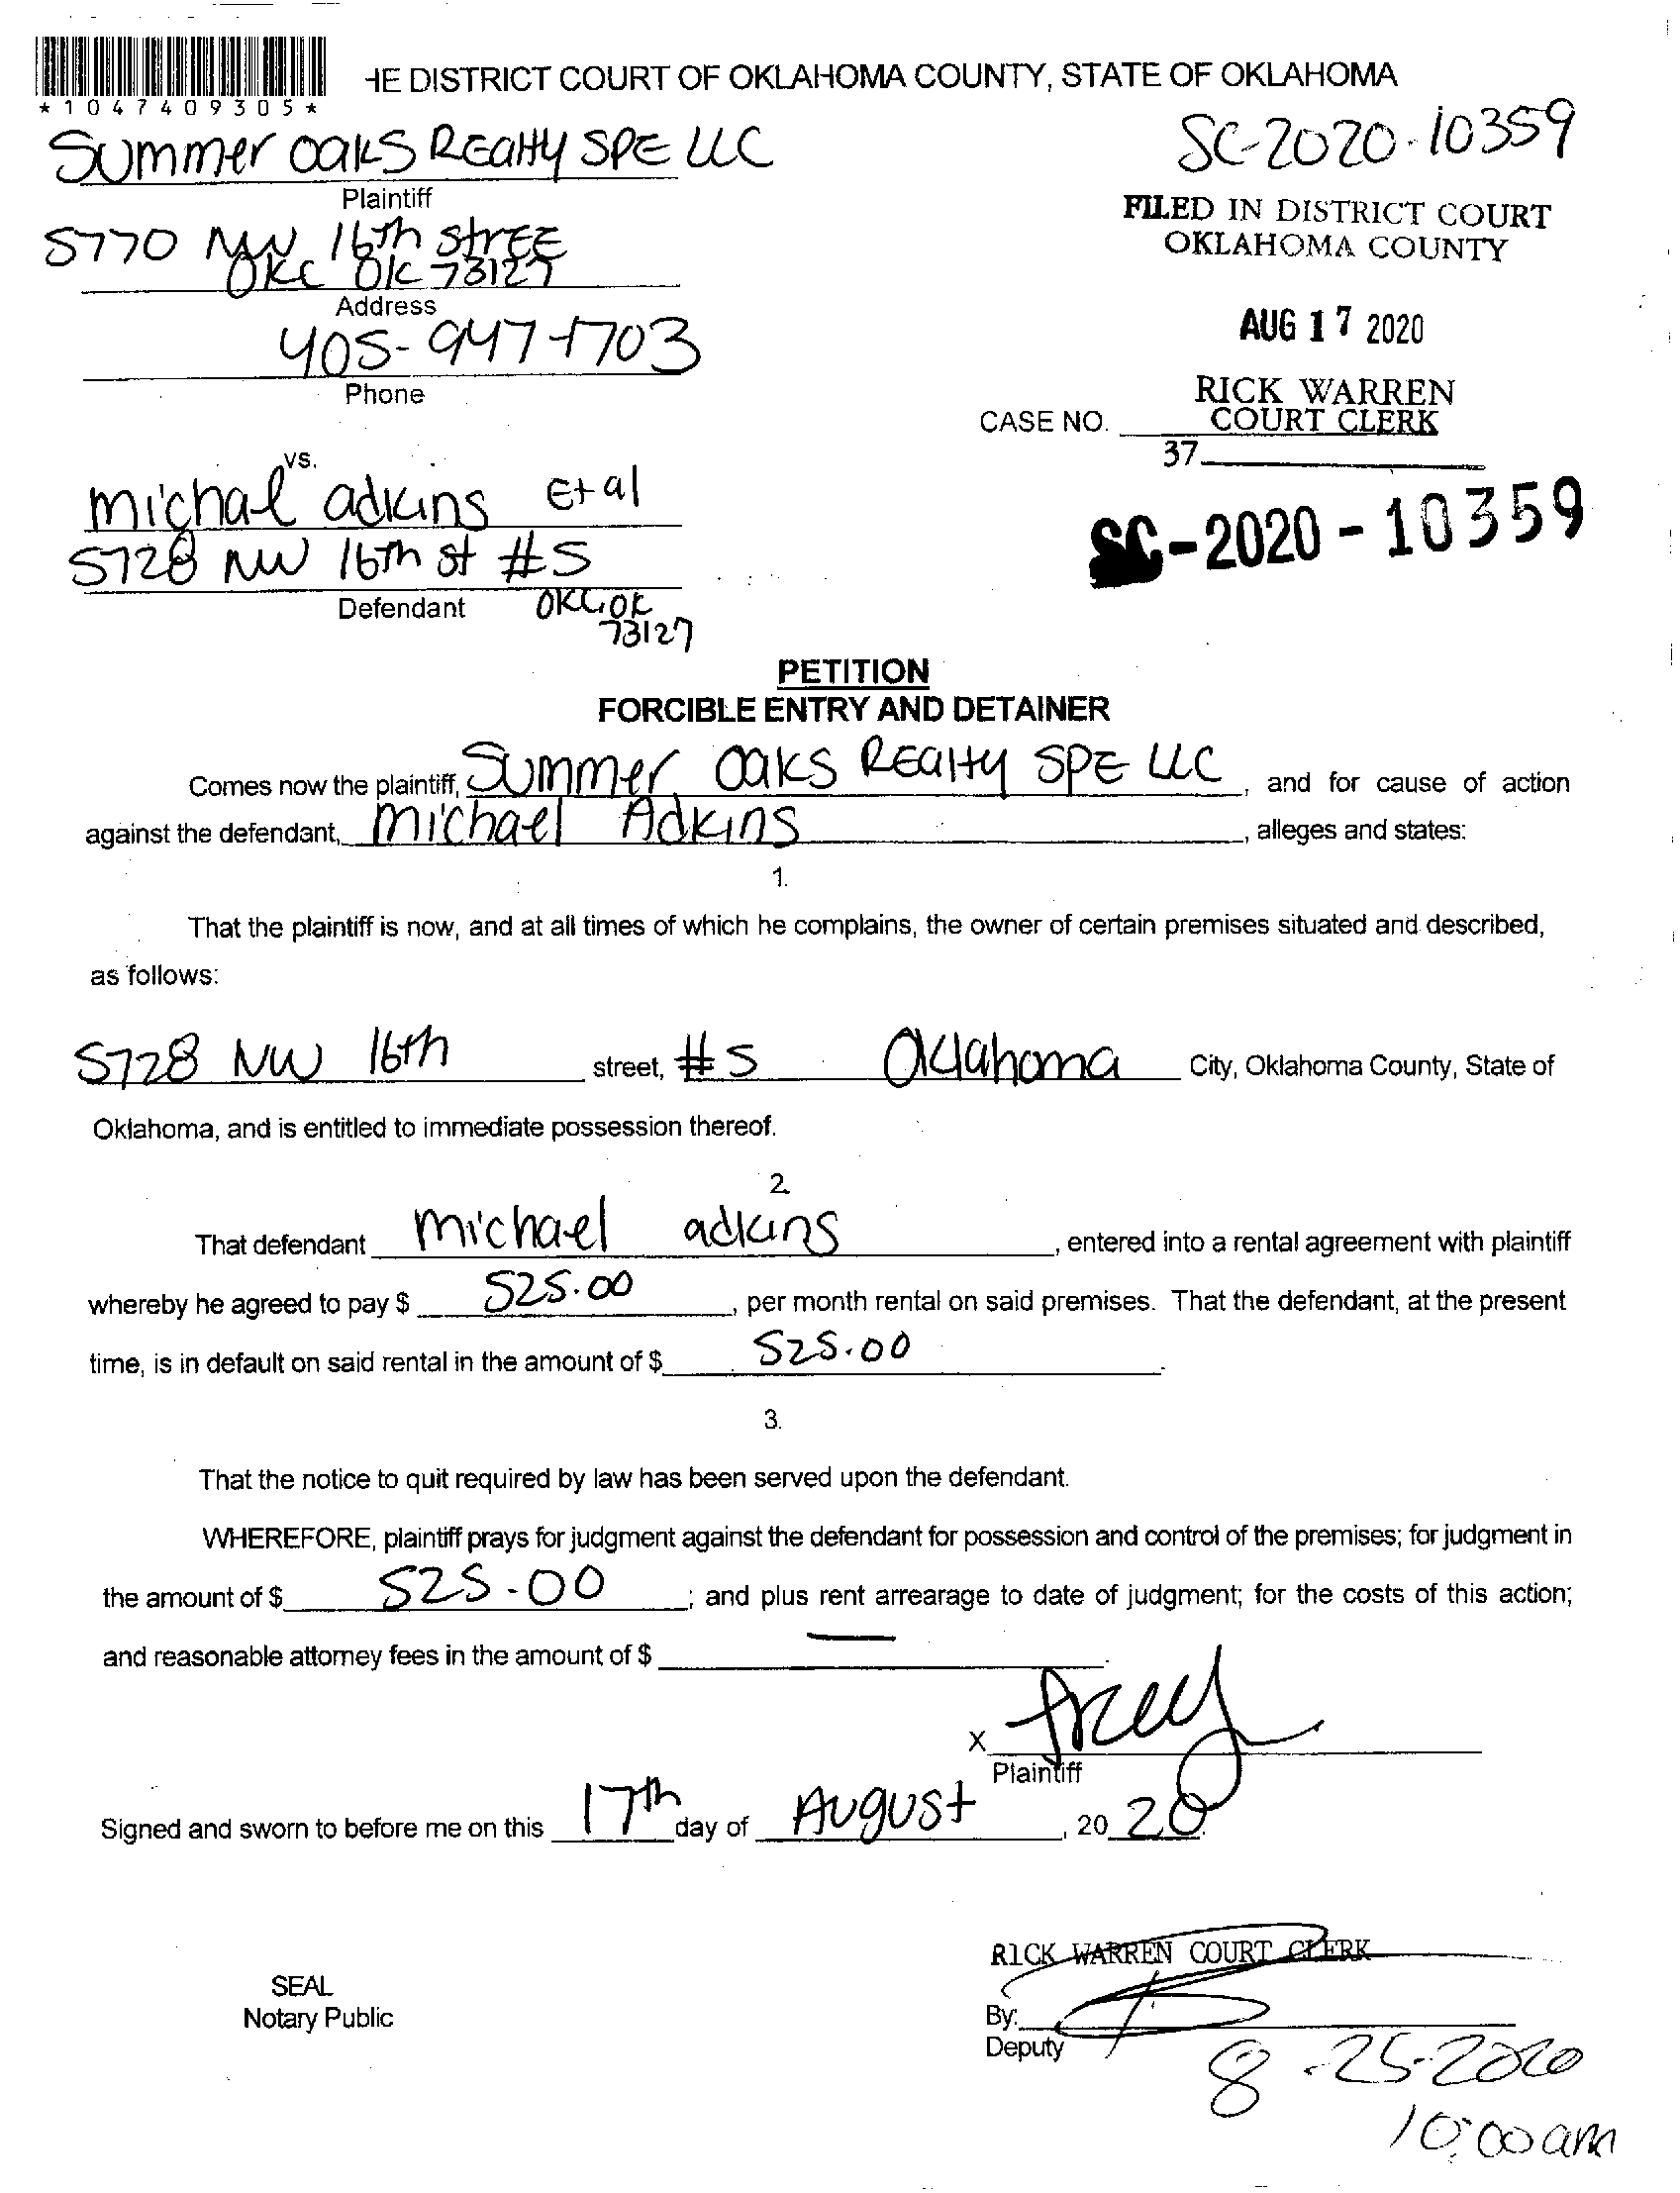 *1047409305*
HE DISTRICT COURT OF OKLAHOMA COUNTY, STATE OF OKLAHOMA
Summer Oaks Realty SPE LLC
SC-2020-10359
Plaintiff
FILED IN DISTRICT COURT
OKLAHOMA COUNTY
5770 NW 16th Stree
OKC OK 73127
Address
AUG 17 2020
405-947-1703
Phone
RICK WARREN
CASE NO. COURT CLERK
37
vs.
michal adkins Et al
SC-2020-10359
5728 NW 16th st #5
Defendant OKC, OK
73127
PETITION
FORCIBLE ENTRY AND DETAINER
Comes now the plaintiff, Summer Oaks Realty SPE LLC, and for cause of action
against the defendant, michael Adkins, alleges and states:
1.
That the plaintiff is now, and at all times of which he complains, the owner of certain premises situated and described,
as follows:
5728 NW 16th street, #5 Oklahoma City, Oklahoma County, State of
Oklahoma, and is entitled to immediate possession thereof.
2.
That defendant michael adkins, entered into a rental agreement with plaintiff
whereby he agreed to pay $ 525.00, per month rental on said premises. That the defendant, at the present
time, is in default on said rental in the amount of $ 525.00.
3.
That the notice to quit required by law has been served upon the defendant.
WHEREFORE, plaintiff prays for judgment against the defendant for possession and control of the premises; for judgment in
the amount of $ 525.00; and plus rent arrearage to date of judgment; for the costs of this action;
and reasonable attorney fees in the amount of $ —.
X
Plaintiff
Signed and sworn to before me on this 17th day of August, 2020.
RICK WARREN COURT CLERK
SEAL
Notary Public
By:
Deputy
8-25-2020
10:00 am